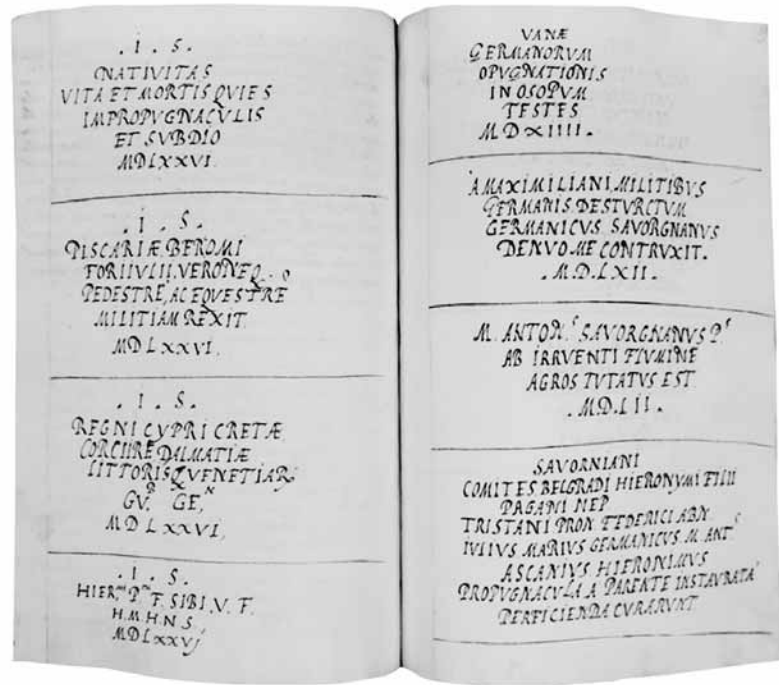 . I . S .
NATIVITAS
VITA ET MORTIS QVIES
IMPROPVGNACVLIS
ET SVBDIO
MDLXXVI
. I . S .
PISCARIÆ, BEROMI
FORIIVLII, VERONEQ. O
PEDESTRE, AC EQVESTRE
MILITIAM REXIT
MDLXXVI
. I . S .
REGNI CVPRI CRETÆ
CORCIIRE DALMATIÆ
LITTORISQ VENETIAR
GV.R GE,N
MDLXXVI,
. I . S .
HIER.mi P.ni F. SIBI. V. F.
H. M. H. N. S
MDLXXVj
VANÆ
GERMANORVM
OPVGNATIONIS
IN OSOPVM
TESTES
MDXIIII.
A MAXIMILIANI, MILITIBVS
GERMANIS DESTVRCTVM
GERMANICVS SAVORGNANVS
DENVO ME CONTRVXIT.
. M.D.LXII.
M. ANTON.s SAVORGNANVS P.s
AB IRRVENTI FLVMINE
AGROS TVTATVS EST
. M.D.LII.
SAVORNIANI
COMITES BELGRADI HIERONYMI FILII
PAGANI NEP
TRISTANI PRON FEDERICI ABN
IVLIVS MARIVS GERMANICVS M. ANTs
ASCANIVS HIERONIMVS
PROPVGNACVLA A PARENTE INSTAVRATA
PERFICIENDA CVRARVNT